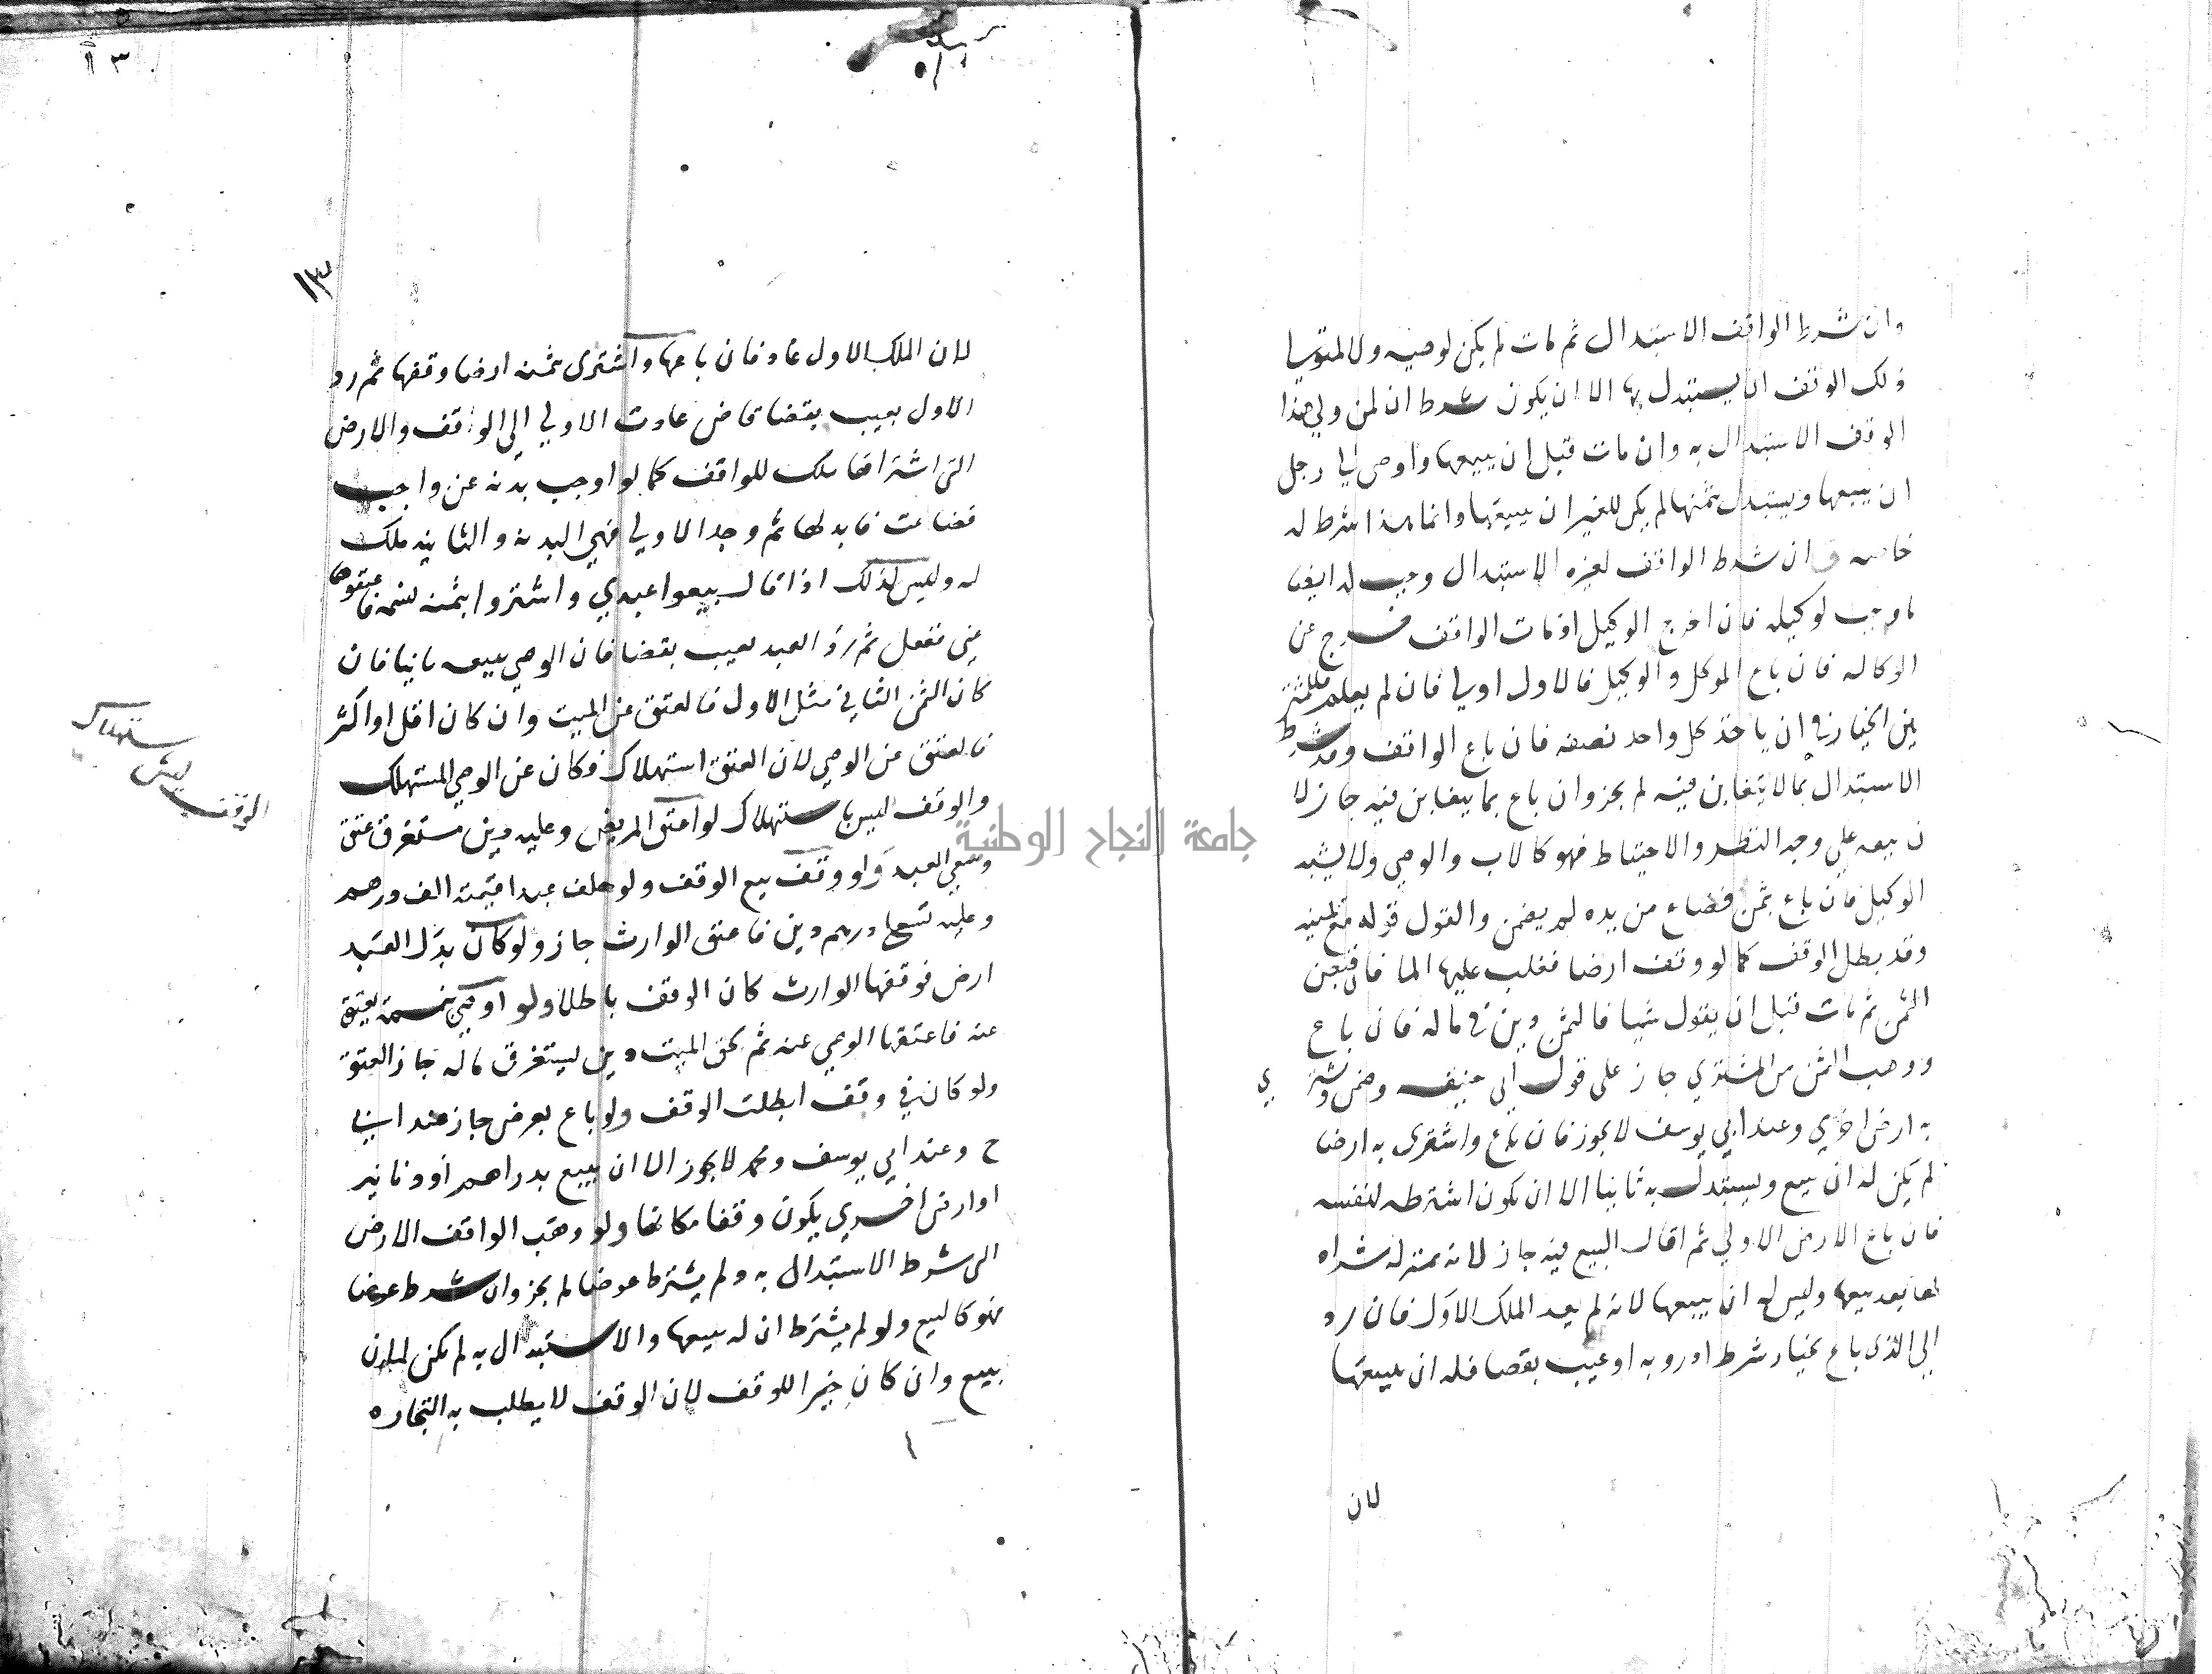 وان شرط الواقف الاستبدال ثم مات لم يكن لوصيه ولا لمتوليا
ذلك الوقف ان يستبدل بها الا ان يكون شرط ان لمن ولي هذا
الوقف الاستبدال به وان مات قبل ان يبيعها واوصي الي رجل
ان يبيعها ويستبدل بثمنها لم يكن للغير ان يبيعها وانما هذا شرط له
خاصه وان شرط الواقف لغيره الاستبدال وجب له ايضا
ما وجب لوكيله فان اخرج الوكيل او مات الواقف خرج عن
الوكاله فان باع الموكل والوكيل فالاول اولي فان لم يعلم فللمشتر
يين الخيار في ان ياخذ كل واحد نصفه فان باع الواقف وقد شرط
الاستبدال بما لا يتغابن فيه لم يجز وان باع بما يتغابن فيه جاز لا
ن بيعه علي وجه النظر والاحتياط فهو كالاب والوصي ولا يشبه
الوكيل فان باع بثمن فضاع من يده لم يضمن والقول قوله مع يمينه
وقد بطل الوقف كما لو وقف ارضا فغلب عليها الما فان قبض
الثمن ثم مات قبل ان يقول شيا فالثمن دين في ماله فان باع
ووهب الثمن من المشتري جاز علي قول ابي حنيفه وضمن ويشتر ي
به ارض اخري وعند ابي يوسف لا يجوز فان باع واشترى به ارضا
لم يكن له ان يبيع ويستبدل به ثانيا الا ان يكون اشترطه لنفسه
فان باع الارض الاولي ثم اقال البيع فيه جاز لانه بمنزله شراه
لها بعد بيعها وليس له ان يبيعها لانه لم يعد الملك الاول فان رد
الي الذي باع بخيار شرط او رويه او عيب بقضا فله ان يبيعها
لان
١٣
لان الملك الاول عاد فان باعها واشترى بثمنه ارضا وقفها ثم رد
الاول بعيب بقضا قاض عادت الاولي الي الواقف والارض
التي اشتراها ملك للواقف كما لو اوجب بدنه عن واجب
فضاعت فابدلها ثم وجد الاولي فهي البدنه والثانيه ملك
له وليس كذلك اذا قال بيعوا عبدي واشتروا بثمنه نسمه فاعتقوها
عني ففعل ثم رد العبد بعيب بقضا فان الوصي يبيعه ثانيا فان
كان الثمن الثاني مثل الاول فالعتق عن الميت وان كان اقل او اكثر
فالعتق عن الوصي لان العتق استهلاك فكان عن الوصي المستهلك
والوقف ليس باستهلاك لو اعتق المريض وعليه دين مستغرق عتق
وسعي العبد ولو وقف بيع الوقف ولو خلف عبدا قيمته الف درهم
وعليه تسعمايه درهم دين فاعتق الوارث جاز ولو كان بدل العبد
ارض فوقفها الوارث كان الوقف باطلا ولو اوصي بنسمة يعتق
عنه فاعتقها الوصي عنه ثم لحق الميت دين يستغرق ماله جاز العتق
ولو كان في وقف ابطلت الوقف ولو باع بعرض جاز عند ابي
ح وعند ابي يوسف ومحمد لا يجوز الا ان يبيع بدراهم او دنانير
او ارض اخري يكون وقفا مكانها ولو وهب الواقف الارض
التي شرط الاستبدال به ولم يشترط عوضا لم يجز وان شرط عوضا
فهو كالبيع ولو لم يشترط ان له بيعها والاستبدال به لم يكن له ان
يبيع وان كان خيرا للوقف لان الوقف لا يطلب به التجاره
الوقف ليس ستهلاك
جامعة النجاح الوطنية